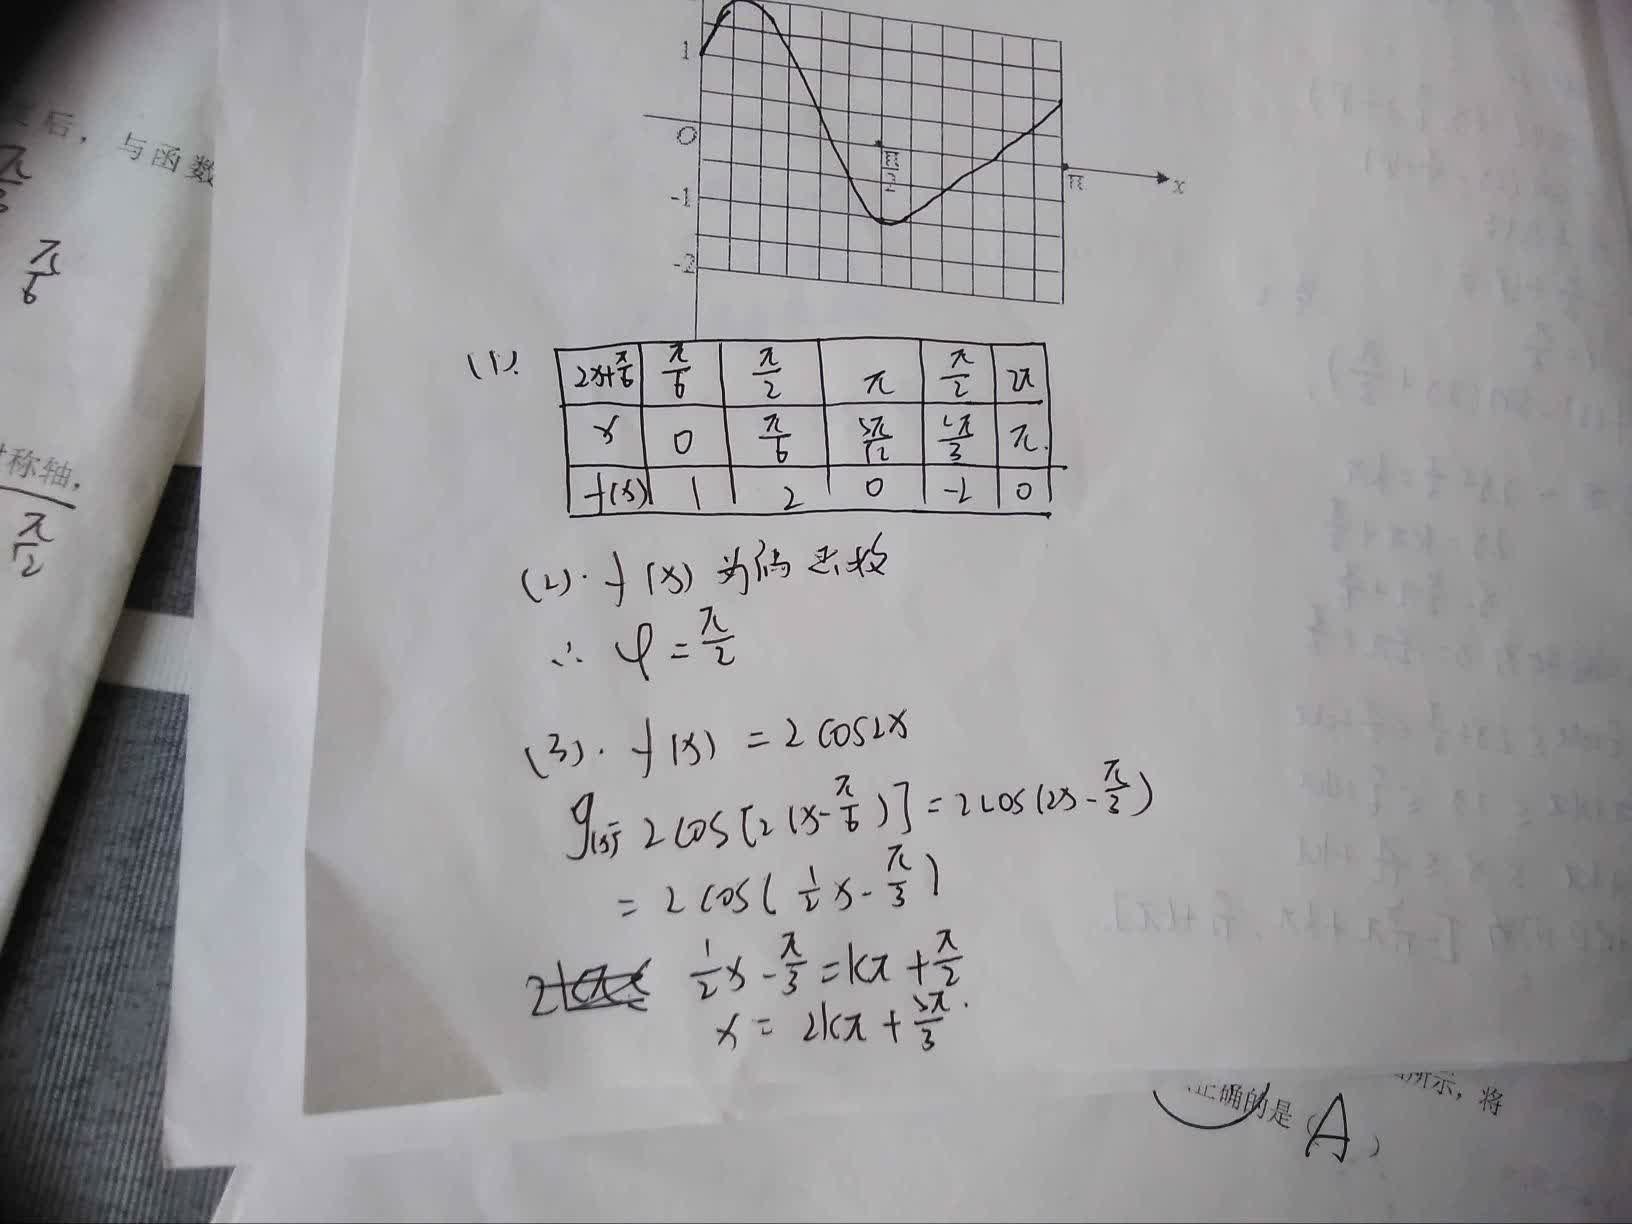 后，与函数
π/6
称轴，
π/2
1
0
π/2
π
x
-1
-2
(1).
2x+π/6 π/6 π/2 π π/2 2π
x 0 π/6 5π/12 2π/3 π.
f(x) 1 2 0 -2 0
(2). f(x)为偶函数
∴ φ = π/2
(3). f(x) = 2cos2x
g(x) = 2cos[2(x-π/6)] = 2cos(2x-π/3)
= 2cos(1/2x-π/3)
1/2x-π/3 = kπ+π/2
x = 2kπ+5π/3.
所示，将
正确的是（A）